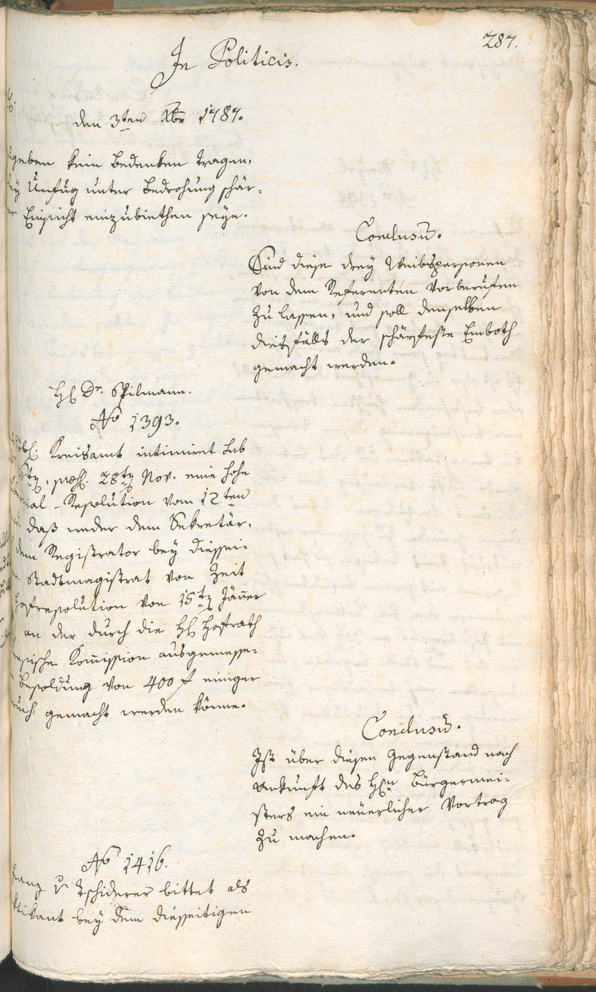 287.
In Politicis.
den 3ten Xbr 1787.
geben kein Bedenken tragen,
Unfug unter Bedrohung schär¬
Einsicht einzubiethen seye.
Conclusū.
Sind diese drey Weibspersonen
von dem Referenten vorberufen
zu lassen, und soll denselben
diesfalls der schärfeste Einboth
gemacht werden.
H Dr. Spilmann.
No 1393.
Kreisamt intimirt sub
28ty Nov. eine hohe
Resolution vom 12ten
daß weder dem Sekretär,
dem Registrator bey diessei¬
Stadtmagistrat von Zeit
Hofresolution von 15ty Jäner
an der durch die HH Hofrath
Komission ausgemesse¬
Besoldung von 400 f einiger
gemacht werden könne.
Conclusū.
Ist über diesen Gegenstand nach
Ankunft des Hrn Bürgermei¬
sters ein neuerlicher Vortrag
zu machen.
No 1416.
Franz v Tschiderer bittet als
bey dem diesseitigen